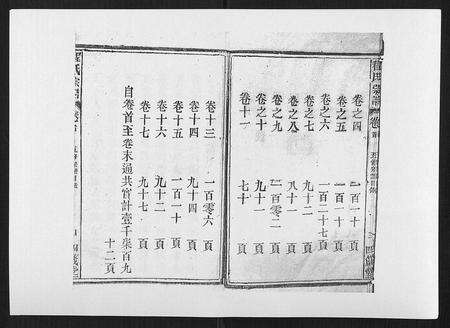 程氏宗譜 卷首
卷之四 一百一十 頁
卷之五 一百一十 頁
卷之六 一百二十七頁
卷之七 九十二 頁
卷之八 八十一 頁
卷之九 一百零二 頁
卷之十 九十一 頁
卷十一 七十 頁
卷十三 一百零六 頁
卷十四 九十四 頁
卷十五 一百一十 頁
卷十六 九十二 頁
卷十七 九十七 頁
自卷首至卷末通共實計壹千柒百九
十二頁
氏宗譜